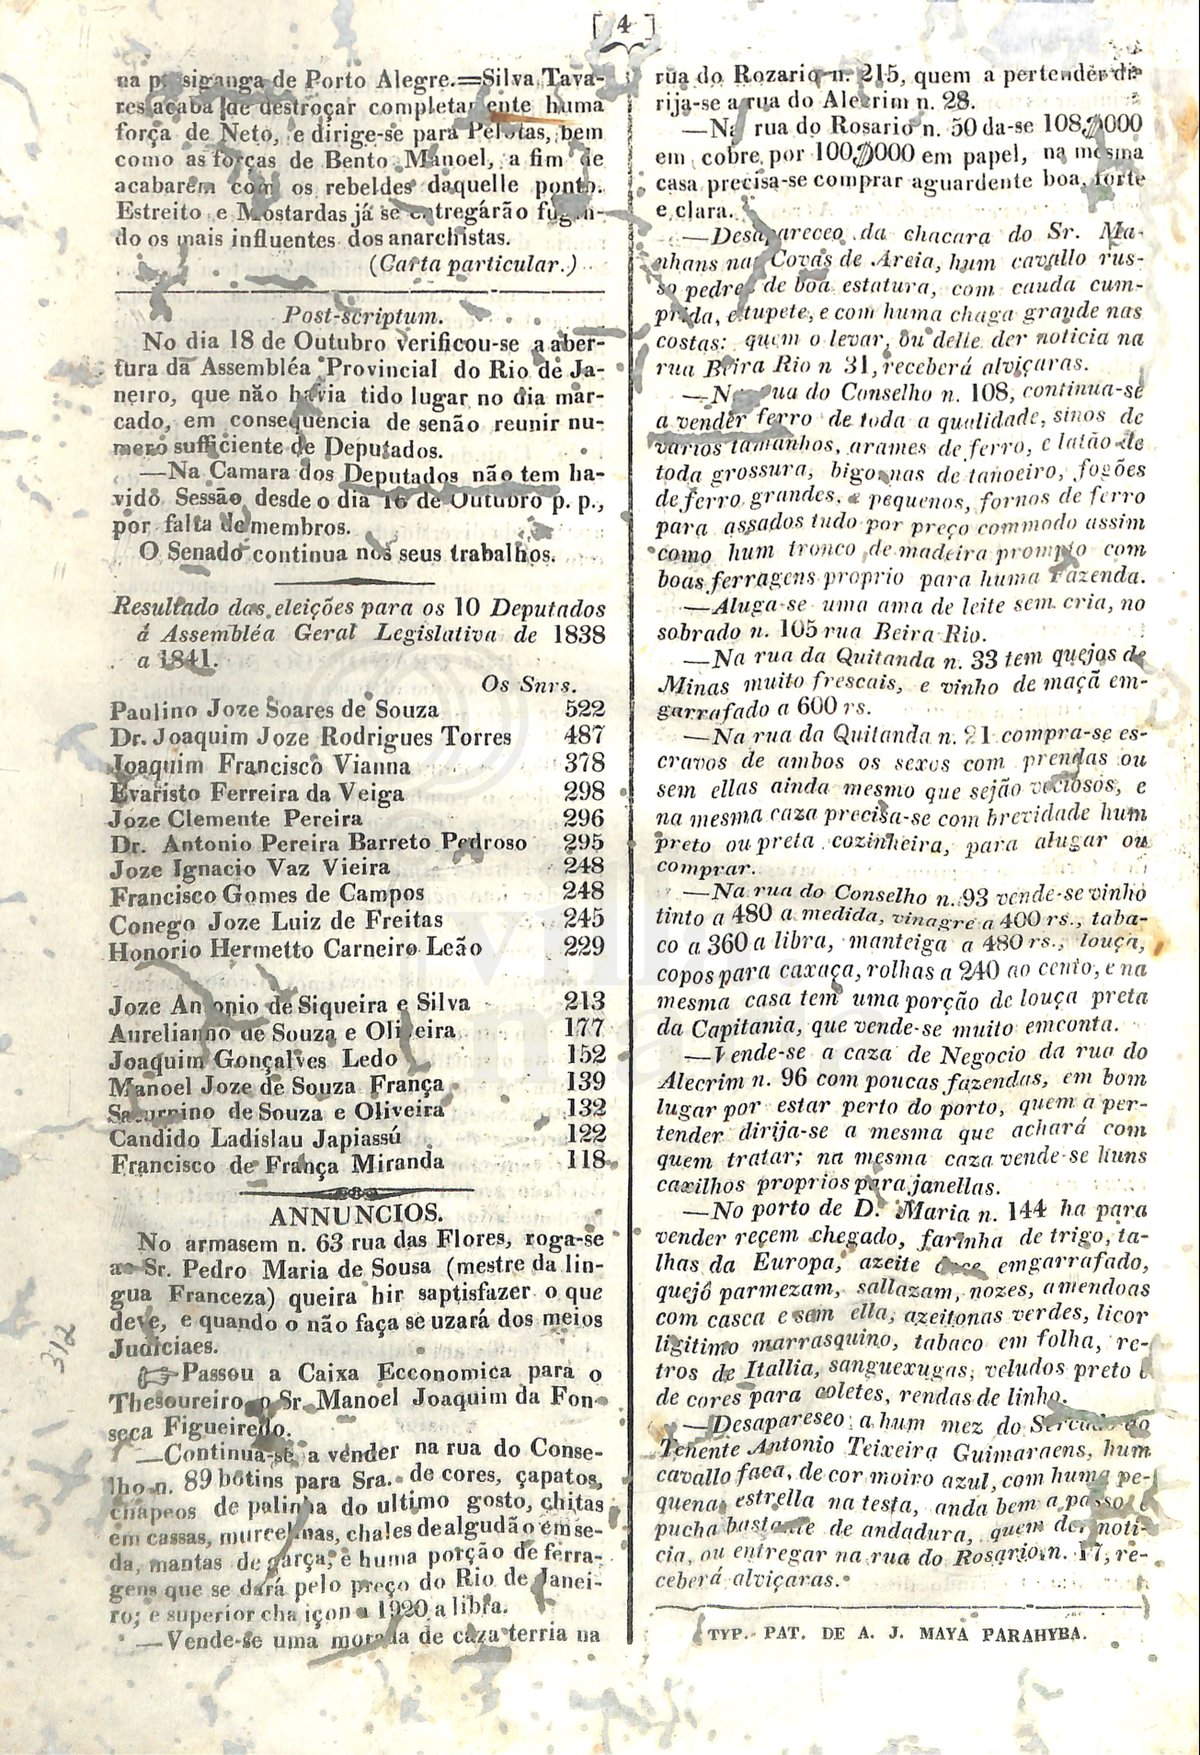 [ 4 ]
na p siganga de Porto Alegre.=Silva Tava-
res acaba de destroçar completamente huma
força de Neto, e dirige-se para Pelotas, bem
como as forças de Bento Manoel, a fim de
acabarem com os rebeldes daquelle ponto.
Estreito e Mostardas já se entregárão fugin-
do os mais influentes dos anarchistas.
(Carta particular.)
Post-scriptum.
No dia 18 de Outubro verificou-se a aber-
tura da Assembléa Provincial do Rio de Ja-
neiro, que não havia tido lugar no dia mar-
cado, em consequencia de senão reunir nu-
mero sufficiente de Deputados.
—Na Camara dos Deputados não tem ha-
vido Sessão desde o dia 16 de Outubro p. p.,
por falta de membros.
O Senado continua nos seus trabalhos.
Resultado das eleições para os 10 Deputados
á Assembléa Geral Legislativa de 1838
a 1841.
Os Snrs.
Paulino Joze Soares de Souza 522
Dr. Joaquim Joze Rodrigues Torres 487
Joaquim Francisco Vianna 378
Evaristo Ferreira da Veiga 298
Joze Clemente Pereira 296
Dr. Antonio Pereira Barreto Pedroso 295
Joze Ignacio Vaz Vieira 248
Francisco Gomes de Campos 248
Conego Joze Luiz de Freitas 245
Honorio Hermetto Carneiro Leão 229
Joze Antonio de Siqueira e Silva 213
Aurelianno de Souza e Oliveira 177
Joaquim Gonçalves Ledo 152
Manoel Joze de Souza França 139
Saturnino de Souza e Oliveira 132
Candido Ladislau Japiassú 122
Francisco de França Miranda 118
ANNUNCIOS.
No armasem n. 63 rua das Flores, roga-se
ao Sr. Pedro Maria de Sousa (mestre da lin-
gua Franceza) queira hir saptisfazer o que
deve, e quando o não faça se uzará dos meios
Judiciaes.
☞Passou a Caixa Ecconomica para o
Thesoureiro o Sr. Manoel Joaquim da Fon-
seca Figueiredo.
—Continua-se a vender na rua do Conse-
lho n. 89 botins para Sra. de cores, çapatos,
chapeos de palinha do ultimo gosto, chitas
em cassas, murcelinas, chales de algudão em se-
da, mantas de garça, e huma porção de ferra-
gens que se dará pelo preço do Rio de Janei-
ro; e superior cha içon a 1920 a libra.
—Vende-se uma morada de caza terria na
rua do Rozario n. 215, quem a pertender di-
rija-se a rua do Alecrim n. 28.
—Na rua do Rosario n. 50 da-se 108$000
em cobre por 100$000 em papel, na mesma
casa precisa-se comprar aguardente boa, forte
e clara.
—Desapareceo da chacara do Sr. Ma-
nhans nas Covas de Areia, hum cavallo rus-
so pedrez de boa estatura, com cauda cum-
prida, e tupete, e com huma chaga grande nas
costas: quem o levar, ou delle der noticia na
rua Beira Rio n 31, receberá alviçaras.
—Na rua do Conselho n. 108, continua-se
a vender ferro de toda a qualidade, sinos de
varios tamanhos, arames de ferro, e latão de
toda grossura, bigornas de tanoeiro, fogões
de ferro grandes, e pequenos, fornos de ferro
para assados tudo por preço commodo assim
como hum tronco de madeira prompto com
boas ferragens proprio para huma Fazenda.
—Aluga-se uma ama de leite sem cria, no
sobrado n. 105 rua Beira Rio.
—Na rua da Quitanda n. 33 tem quejos de
Minas muito frescais, e vinho de maçã em-
garrafado a 600 rs.
—Na rua da Quitanda n. 21 compra-se es-
cravos de ambos os sexos com prendas ou
sem ellas ainda mesmo que sejão viciosos, e
na mesma caza precisa-se com brevidade hum
preto ou preta cozinheira, para alugar ou
comprar.
—Na rua do Conselho n. 93 vende-se vinho
tinto a 480 a medida, vinagre a 400 rs., taba-
co a 360 a libra, manteiga a 480 rs., louça,
copos para caxaça, rolhas a 240 ao cento, e na
mesma casa tem uma porção de louça preta
da Capitania, que vende-se muito emconta.
—Vende-se a caza de Negocio da rua do
Alecrim n. 96 com poucas fazendas, em bom
lugar por estar perto do porto, quem a per-
tender dirija-se a mesma que achará com
quem tratar; na mesma caza vende-se huns
caxilhos proprios para janellas.
—No porto de D. Maria n. 144 ha para
vender reçem chegado, farinha de trigo, ta-
lhas da Europa, azeite doce emgarrafado,
quejo parmezam, sallazam, nozes, amendoas
com casca e sem ella, azeitonas verdes, licor
ligitimo marrasquino, tabaco em folha, re-
tros de Itallia, sanguexugas, veludos preto e
de cores para coletes, rendas de linho.
—Desapareseo a hum mez do Sercado do
Tenente Antonio Teixeira Guimaraens, hum
cavallo faca, de cor moiro azul, com huma pe-
quena estrella na testa, anda bem a passo e
pucha bastante de andadura, quem der noti-
cia, ou entregar na rua do Rosario n. 17, re-
ceberá alviçaras.
TYP. PAT. DE A. J. MAYA PARAHYBA.
312